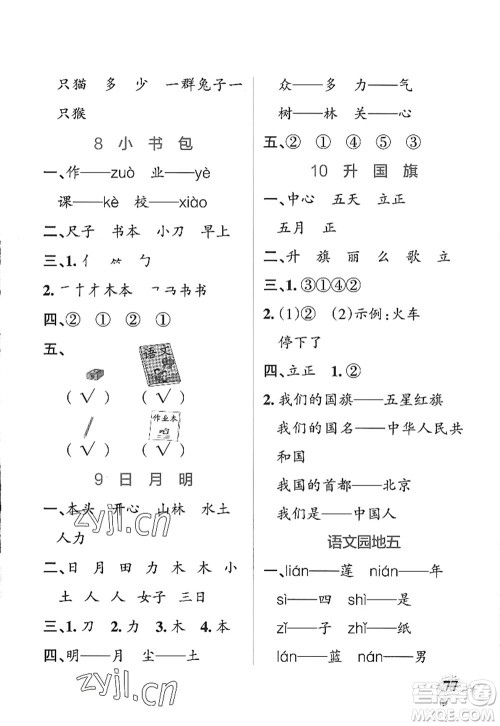 只猫 多 少 一群兔子一
只猴
8 小 书 包
一、作——zuò 业——yè
课——kè 校——xiào
二、尺子 书本 小刀 早上
三、1. 亻 ⺮ 勹
四、② ① ② ①
五、
语文
(√) (√)
作业本
(√) (√)
9 日 月 明
一、本头 开心 山林 水土
人力
二、日 月 田 力 木 木 小
土 人 人 女子 三日
三、1. 刀 2. 力 3. 木 4. 木
四、明——月 尘——土
众——多 力——气
树——林 关——心
五、② ① ④ ⑤ ③
10 升 国 旗
一、中心 五天 立正
五月 正
二、升 旗 丽 么 歌 立
三、1. ③①④②
2. (1)② (2)示例:火车
停下了
四、立正 1. ②
2. 我们的国旗——五星红旗
我们的国名——中华人民共
和国
我国的首都——北京
我们是——中国人
语文园地五
一、lián——莲 nián——年
sì——四 shì——是
zǐ——子 zhǐ——纸
lán——蓝 nán——男
77
zyjl.cn
zyjl.cn
答案圈
MXQE.COM